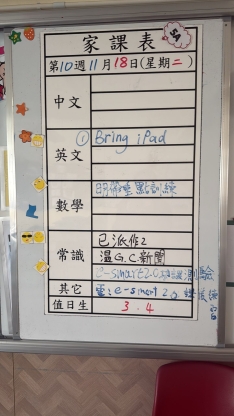 家課表
5A
第10週11月18日(星期二)
中文
英文
① Bring iPad
數學
常識
已派作2
溫G.C新聞
e-smart2.0
其它
電:e-smart 2.0
值日生
3.4